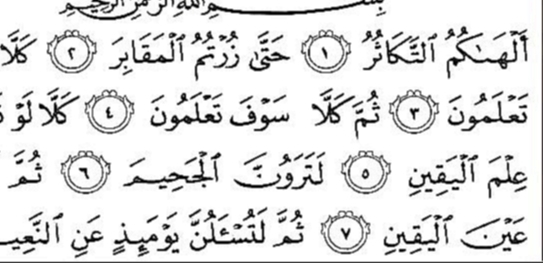 بِسْمِ اللَّهِ الرَّحْمَٰنِ الرَّحِيمِ
أَلْهَىٰكُمُ ٱلتَّكَاثُرُ ١ حَتَّىٰ زُرْتُمُ ٱلْمَقَابِرَ ٢ كَلَّا
تَعْلَمُونَ ٣ ثُمَّ كَلَّا سَوْفَ تَعْلَمُونَ ٤ كَلَّا لَوْ
عِلْمَ ٱلْيَقِينِ ٥ لَتَرَوُنَّ ٱلْجَحِيمَ ٦ ثُمَّ
عَيْنَ ٱلْيَقِينِ ٧ ثُمَّ لَتُسْـَٔلُنَّ يَوْمَئِذٍ عَنِ